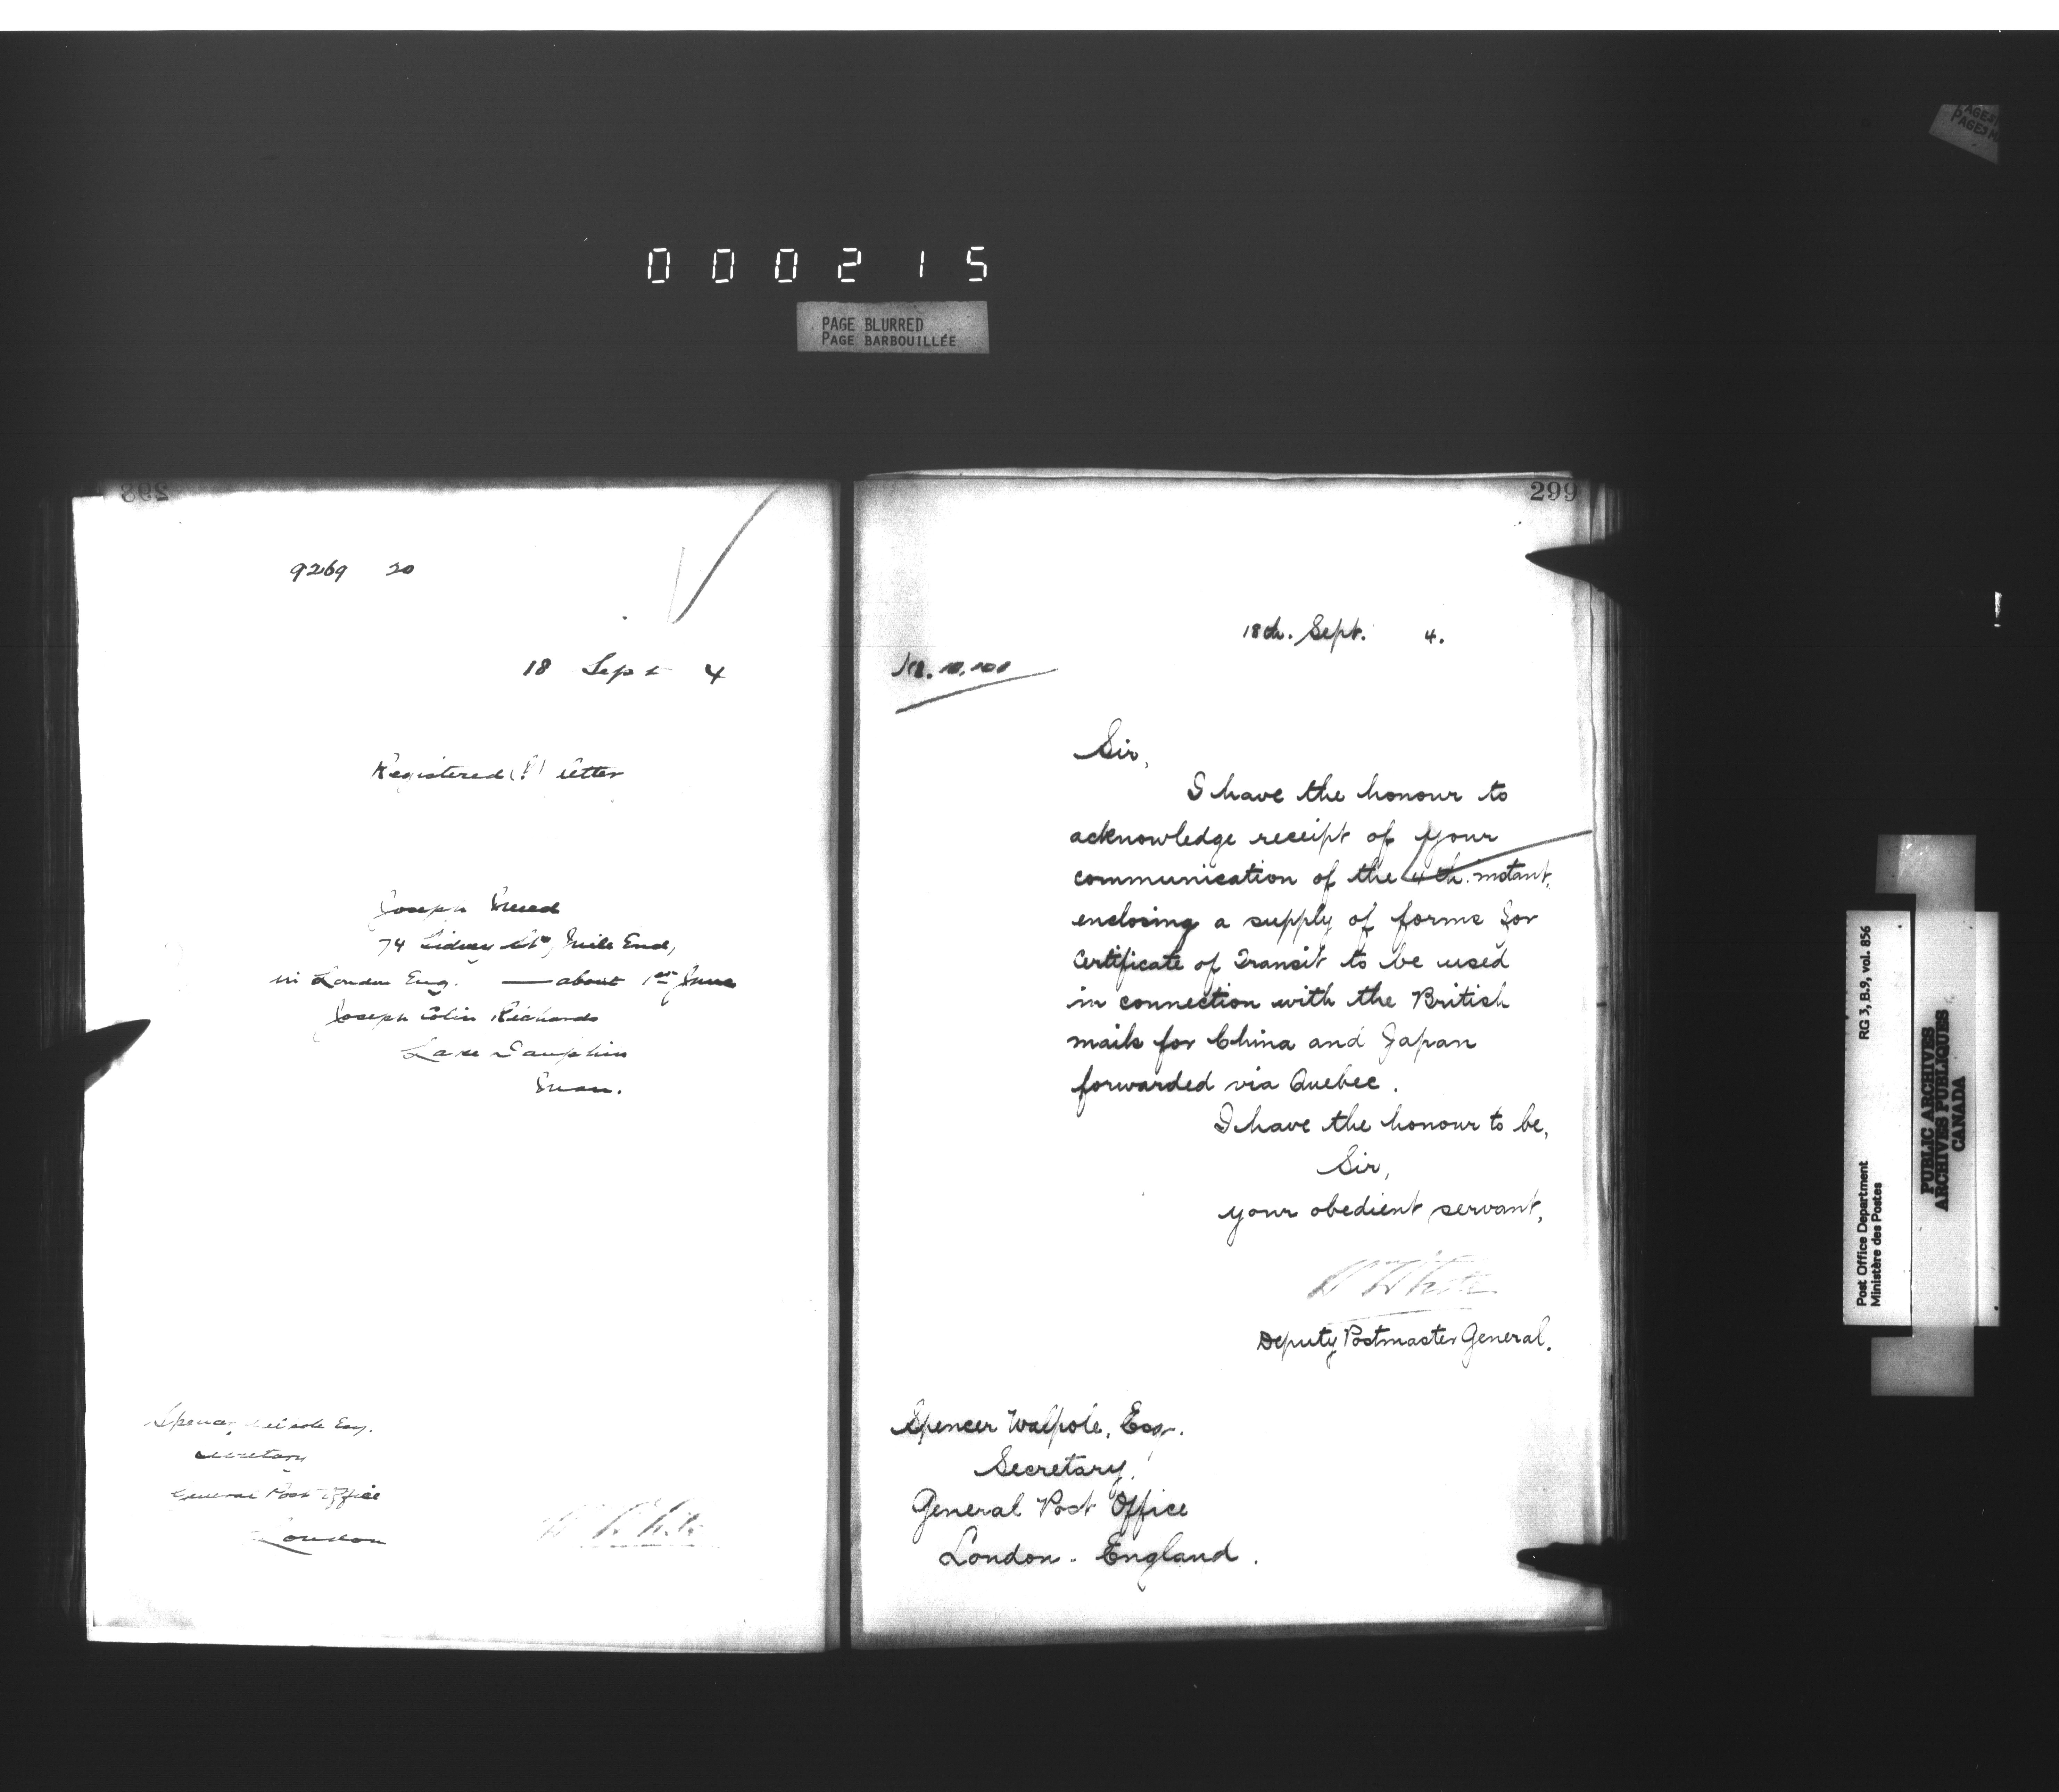 000215
PAGE BLURRED
PAGE BARBOUILLÉE
298
9269 20
18 Sept 4
Registered (?) letter
Joseph
74 Sidney St, Mile End,
in London Eng. — about 1st June
Joseph Colin Richards
Lake Dauphin
Man.
Spencer Walpole Esq.
Secretary
General Post Office
London
W White
299
18th. Sept. 4.
No. 10,100
Sir,
I have the honour to
acknowledge receipt of your
communication of the 4th. instant,
enclosing a supply of forms for
Certificate of Transit to be used
in connection with the British
mails for China and Japan
forwarded via Quebec.
I have the honour to be,
Sir,
your obedient servant,
W White
Deputy Postmaster General.
Spencer Walpole, Esqr.
Secretary,
General Post Office
London. England.
PAGES
Post Office Department
Ministère des Postes
RG 3, B.9, vol. 856
PUBLIC ARCHIVES
ARCHIVES PUBLIQUES
CANADA